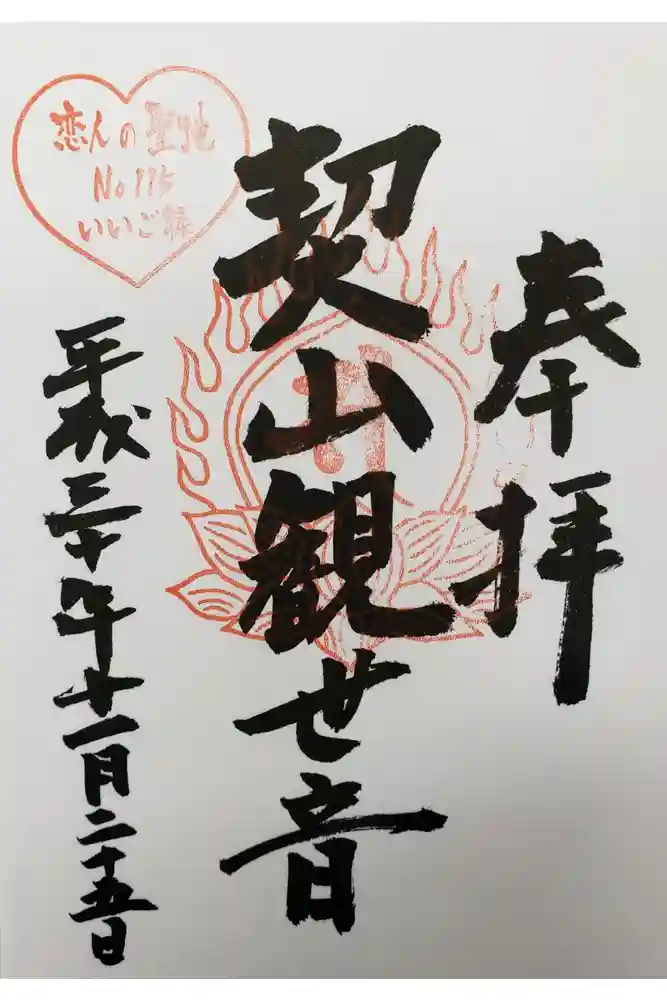 奉拝
契山観世音
平成三十年十一月二十五日
恋人の聖地
No115
いいご縁